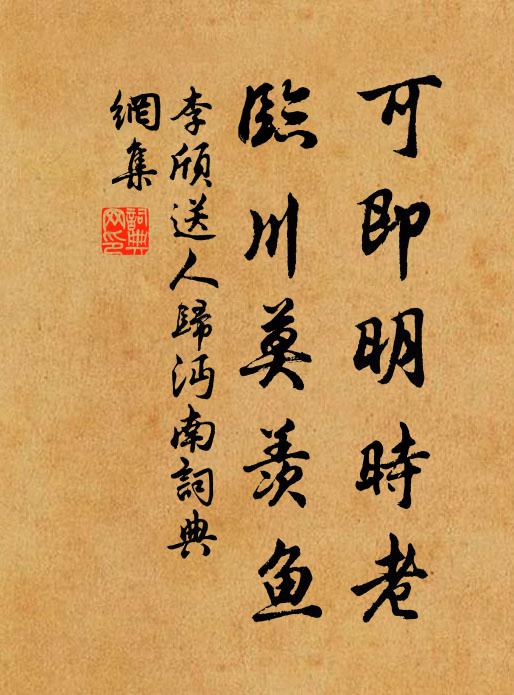 可即明時老
臨川莫羨魚
李頎送人歸沔南詞典
網集
詞典
网印